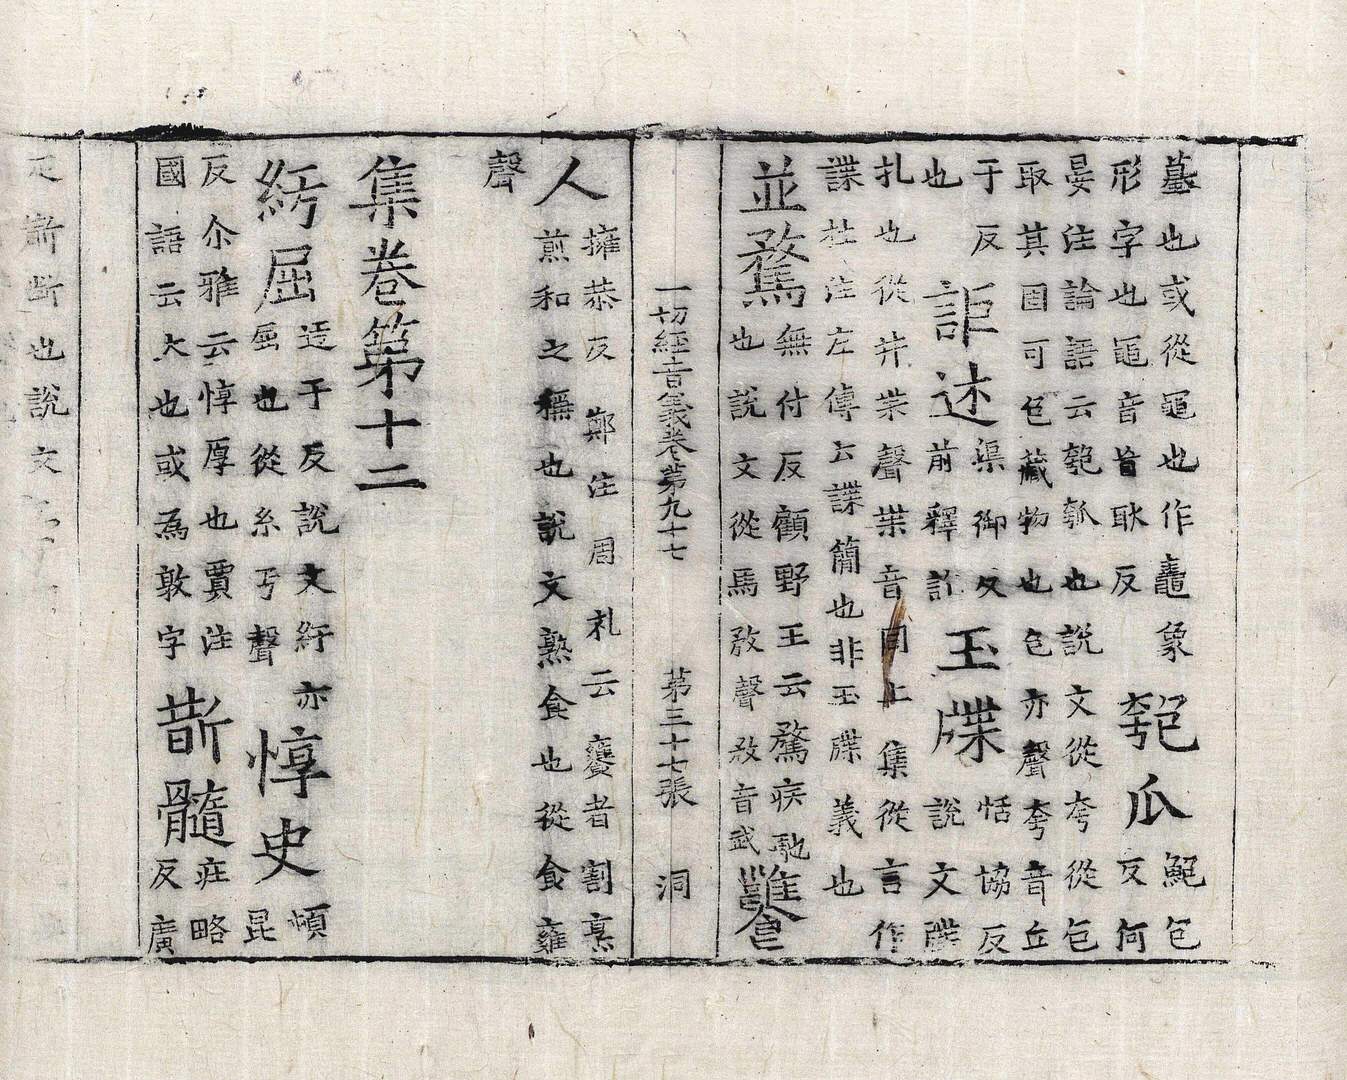 墓也或從黽也作鼃象
形字也黽音耿反
匏瓜
鮑包
反何
晏注論語云匏瓠也說文從夸從包
取其固可包藏物也包亦聲夸音丘
于反
詎述
渠御反
前釋訖
玉牒
恬協反
說文牒
也
札也從片枼聲枼音同上集從言作
諜杜注左傳云諜簡也非玉牒義也
並騖
無付反顧野王云騖疾馳
也說文從馬敄聲敄音武
饔
一切經音義卷第九十七
第三十七張
洞
人
擁恭反鄭注周礼云饔者割烹
煎和之稱也說文熟食也從食雍
聲
集卷第十二
紆屈
迂于反說文紆亦
屈也從糸丂聲
惇史
頓
昆
反尒雅云惇厚也賈注
國語云大也或為敦字
斮髓
疰略
反廣
疋斮斷也說文